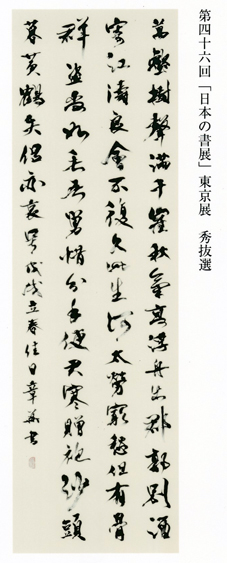 第四十六回「日本の書展」東京展　秀抜選
萬壑樹聲滿千崖秋氣高浮舟出郡郭別酒
寄江濤良會不復久此生何太勞窮愁但有骨
群盜尚如毛吾舅惜分手使君寒贈袍沙頭
暮黃鶴失侶亦哀号戊戌立春佳日